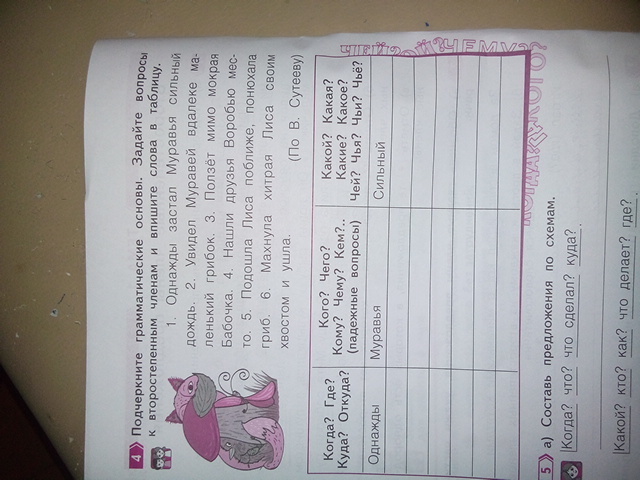 4 Подчеркните грамматические основы. Задайте вопросы
к второстепенным членам и впишите слова в таблицу.
1. Однажды застал Муравья сильный
дождь. 2. Увидел Муравей вдалеке ма-
ленький грибок. 3. Ползёт мимо мокрая
Бабочка. 4. Нашли друзья Воробью мес-
то. 5. Подошла Лиса поближе, понюхала
гриб. 6. Махнула хитрая Лиса своим
хвостом и ушла.
(По В. Сутееву)
Когда? Где?
Куда? Откуда?
Кого? Чего?
Кому? Чему? Кем?..
(падежные вопросы)
Какой? Какая?
Какие? Какое?
Чей? Чья? Чьи? Чьё?
Однажды
Муравья
Сильный
ЧЕМУ?
КОГО?
5 а) Составь предложения по схемам.
Когда? что? что сделал? куда?
Какой? кто? как? что делает? где?